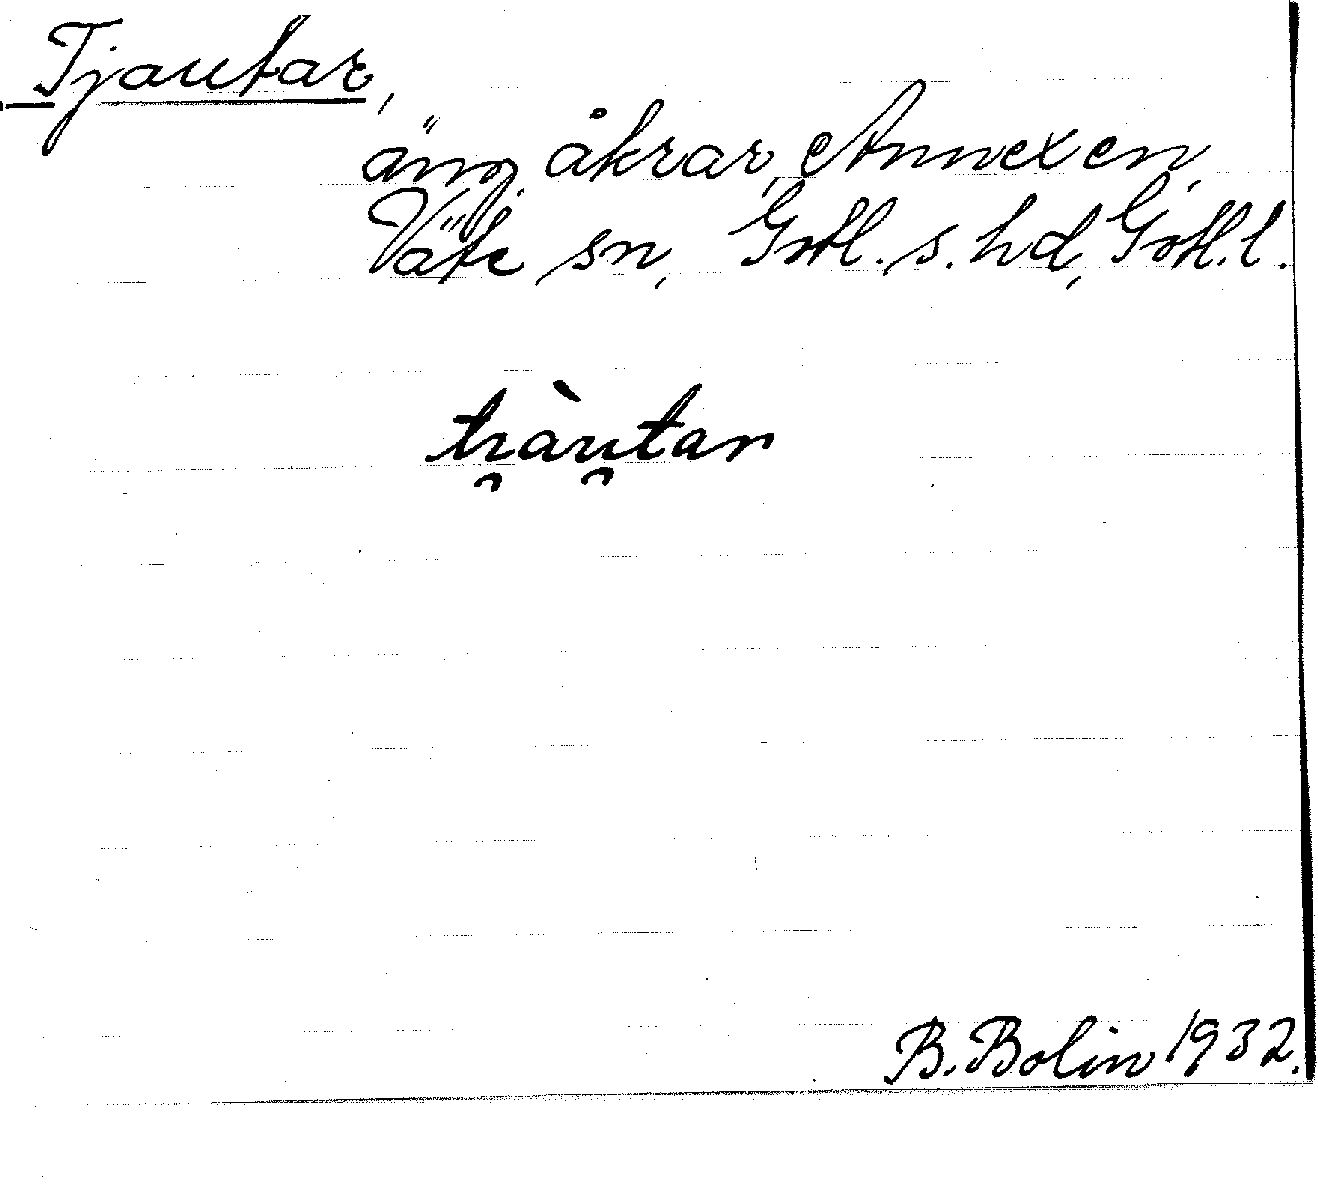 Tjautar,
äng, åkrar, Annexen,
Väte sn, Gotl. s. hd, Gotl. l.
tı̯àu̯tar
B. Bolin 1932.